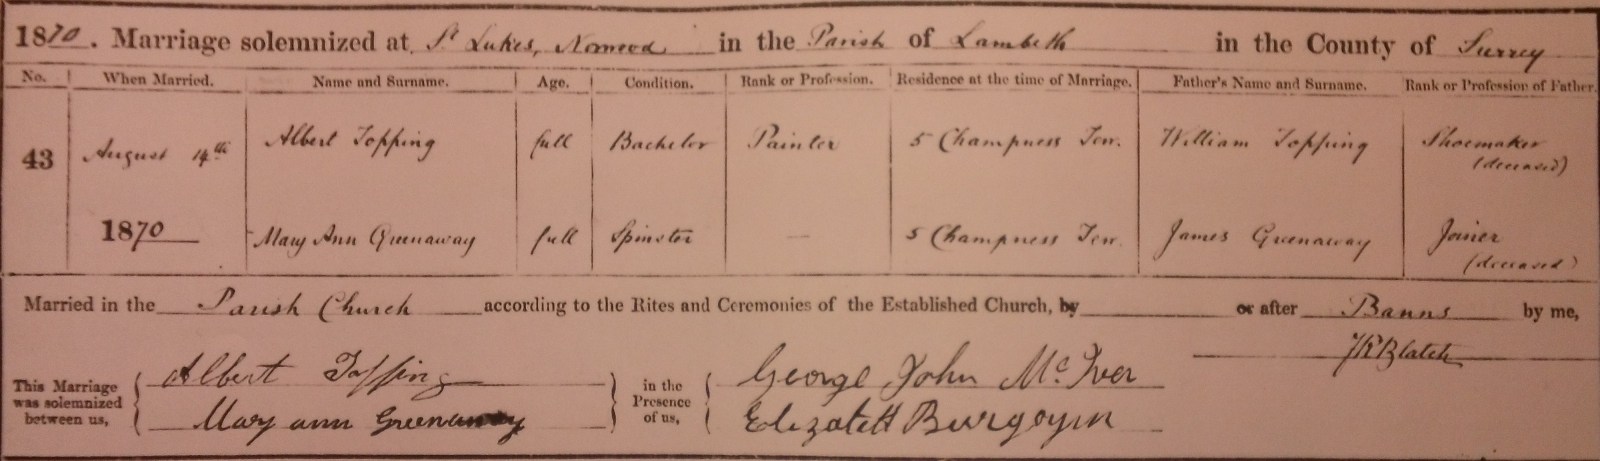 1870. Marriage solemnized at St Lukes, Norwood in the Parish of Lambeth in the County of Surrey
No. When Married. Name and Surname. Age. Condition. Rank or Profession. Residence at the time of Marriage. Father's Name and Surname. Rank or Profession of Father.
43 August 14th Albert Topping full Bachelor Painter 5 Champness Terr. William Topping Shoemaker
(deceased)
1870 Mary Ann Greenaway full Spinster — 5 Champness Terr. James Greenaway Joiner
(deceased)
Married in the Parish Church according to the Rites and Ceremonies of the Established Church, by or after Banns by me,
Blatch
This Marriage was solemnized between us, Albert Topping in the Presence of us, George John McIver
Mary ann Greenaway Elizabeth Burgoyn